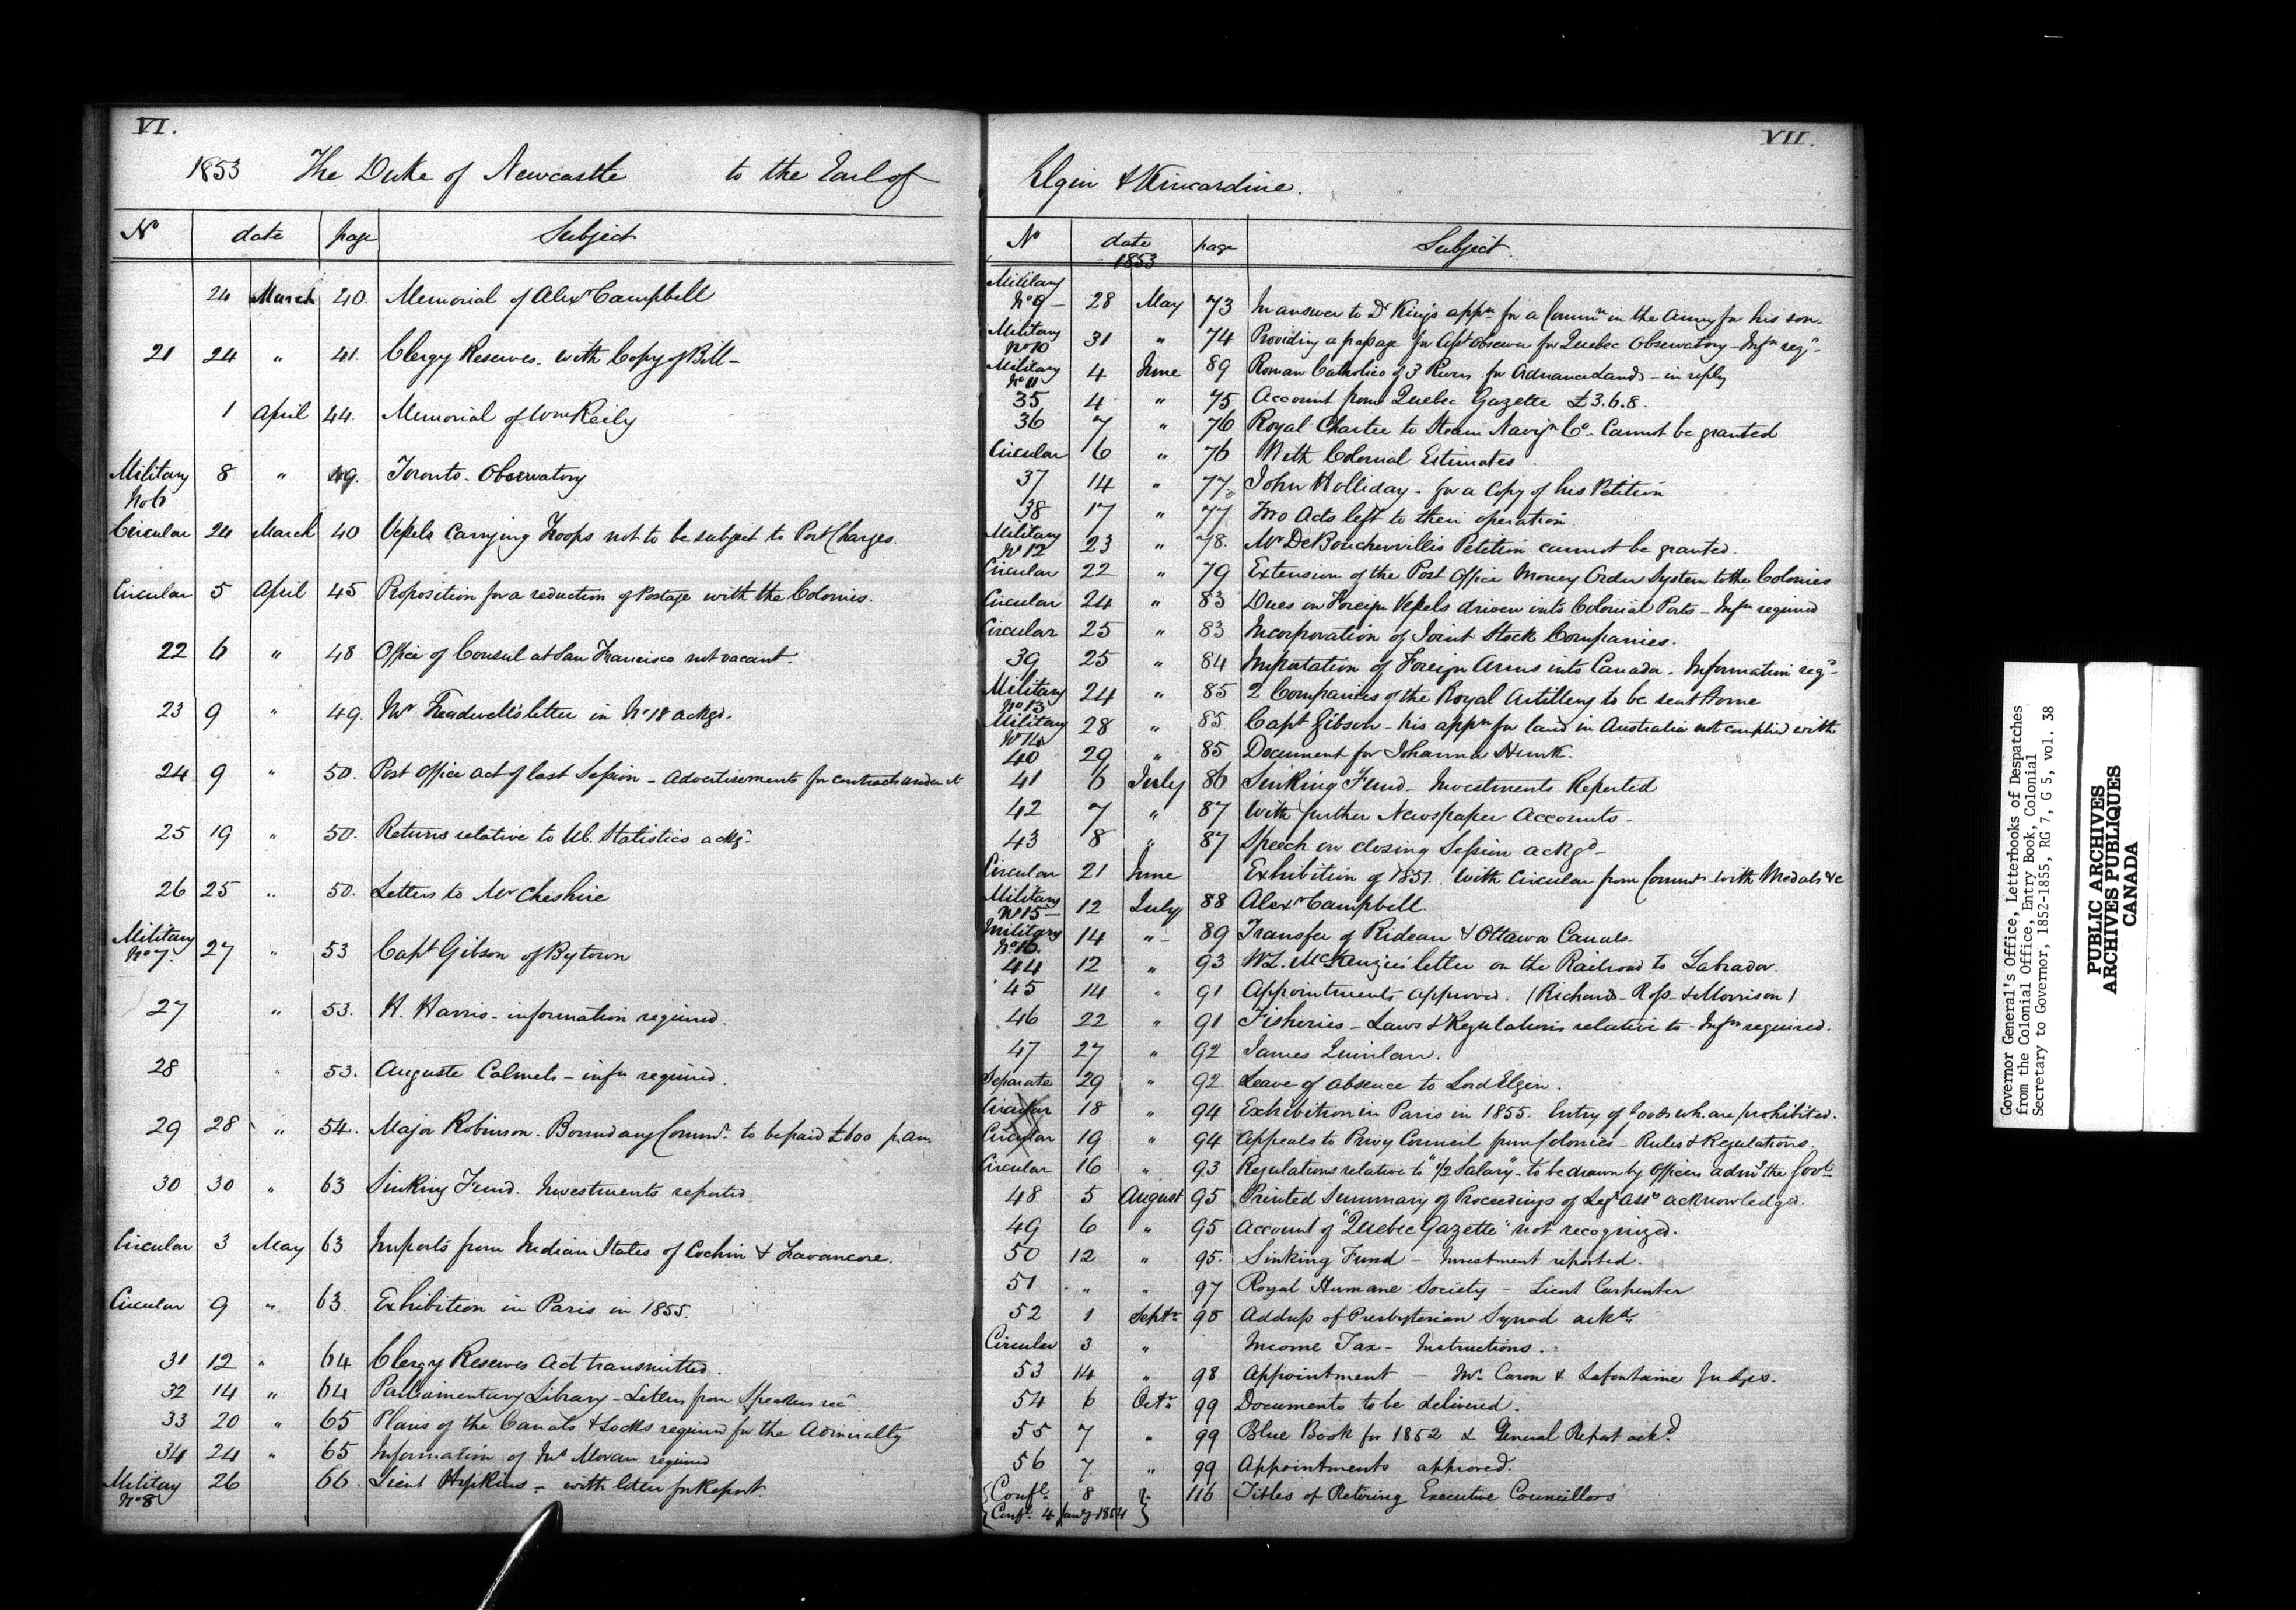 VI.
1853 The Duke of Newcastle to the Earl of
No date page Subject
24 March 40. Memorial of Alexr Campbell
21 24 " 41. Clergy Reserves. with Copy of Bill -
1 April 44. Memorial of Wm Reily
Military No 6 8 " 49. Toronto - Observatory
Circular 24 March 40 Vessels Carrying Troops not to be subject to Port Charges.
Circular 5 April 45 Proposition for a reduction of Postage with the Colonies.
22 6 " 48 Office of Consul at San Francisco not vacant.
23 9 " 49. Mr Treadwell's letter in No 18 ackgd.
24 9 " 50. Post Office Act of last Session - Advertisements for contracts under it
25 19 " 50. Returns relative to Statistics ackgd
26 25 " 50. Letters to Mr Cheshire
Military No 7. 27 " 53 Capt Gibson of Bytown
27 " 53. H. Harris - information required.
28 " 53. Auguste Calmels - infn required.
29 28 " 54. Major Robinson. Boundary Commr. to be paid £600 p an.
30 30 " 63 Sinking Fund. Investments reported
Circular 3 May 63 Imports from Indian States of Cochin & Travancore.
Circular 9 " 63. Exhibition in Paris in 1855.
31 12 " 64 Clergy Reserves Act transmitted.
32 14 " 64 Parliamentary Library - Letters from Speakers recd
33 20 " 65 Plans of the Canals & Locks required for the Admiralty
34 24 " 65 Information of Moran required
Military No 8 26 66. Lieut Hopkins - with letter for Report.
VII.
Elgin & Kincardine.
No date 1853 page Subject.
Military No 9 - 28 May 73 In answer to Dr King's appn for a Commn in the Army for his son.
Military No 10 31 " 74 Providing a passage for Asst Observer for Quebec Observatory - Infn reqd
Military No 11 4 June 89 Roman Catholics of 3 Rivers for Ordnance Lands - in reply
35 4 " 75 Account from Quebec Gazette £3.6.8.
36 7 " 76 Royal Charter to Steam Navign Co - Cannot be granted
Circular 6 " 76 With Colonial Estimates
37 14 " 77. John Holliday - for a Copy of his Petition
38 17 " 77 Two Acts left to their operation
Military No 12 23 " 78. Mr DeBoucherville's Petition cannot be granted.
Circular 22 " 79 Extension of the Post Office Money Order System to the Colonies
Circular 24 " 83 Dues on Foreign Vessels driven into Colonial Ports - Infn required
Circular 25 " 83 Incorporation of Joint Stock Companies.
39 25 " 84 Importation of Foreign Arms into Canada. Information reqd
Military No 13 24 " 85 2 Companies of the Royal Artillery to be sent Home
Military No 14 28 " 85. Capt Gibson - his appn for land in Australia not complied with
40 29 " 85 Document for Johanna
41 6 July 86 Sinking Fund - Investments Reported
42 7 " 87 With further Newspaper Accounts -
43 8 " 87 Speech on closing Session ackgd -
Circular 21 June Exhibition of 1851. With Circular from Commrs with Medals &c
Military No 15 - 12 July 88 Alexr Campbell.
Military No 16. 14 " - 89 Transfer of Rideau & Ottawa Canals.
44 12 " 93 W.L. McKenzie's letter on the Railroad to Labrador.
45 14 " 91 Appointments approved. (Richards - Ross - & Morrison)
46 22 " 91 Fisheries - Laws & Regulations relative to - Infn required.
47 27 " 92 James Quinlan.
Separate 29 " 92. Leave of Absence to Lord Elgin.
Circular 18 " 94 Exhibition in Paris in 1855. Entry of goods wh. are prohibited.
Circular 19 " 94 Appeals to Privy Council from Colonies - Rules & Regulations.
Circular 16 " 93 Regulations relative to "1/2 Salary" - to be drawn by Officers admg the Govt
48 5 August 95 Printed Summary of Proceedings of Legs Assy acknowledged.
49 6 " 95 Account of "Quebec Gazette" not recognized.
50 12 " 95. Sinking Fund - Investment reported.
51 " " 97 Royal Humane Society - Lieut Carpenter
52 1 Septr 98 Address of Presbyterian Synod ackd.
Circular 3 " Income Tax - Instructions.
53 14 " 98 Appointment - Mr. Caron & Lafontaine Judges.
54 6 Octr 99 Documents to be delivered.
55 7 " 99 Blue Book for 1852 & General Report ackd.
56 7. " 99 Appointments approved.
Confl. 8 " 116 Titles of Retiring Executive Councillors
Confl. 4 Jany 1854
Governor General's Office, Letterbooks of Despatches
from the Colonial Office, Entry Book, Colonial
Secretary to Governor, 1852-1855, RG 7, G 5, vol. 38
PUBLIC ARCHIVES
ARCHIVES PUBLIQUES
CANADA